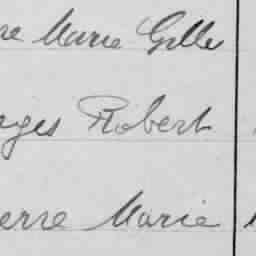 re Marie Gille
rges Robert
ierre Marie